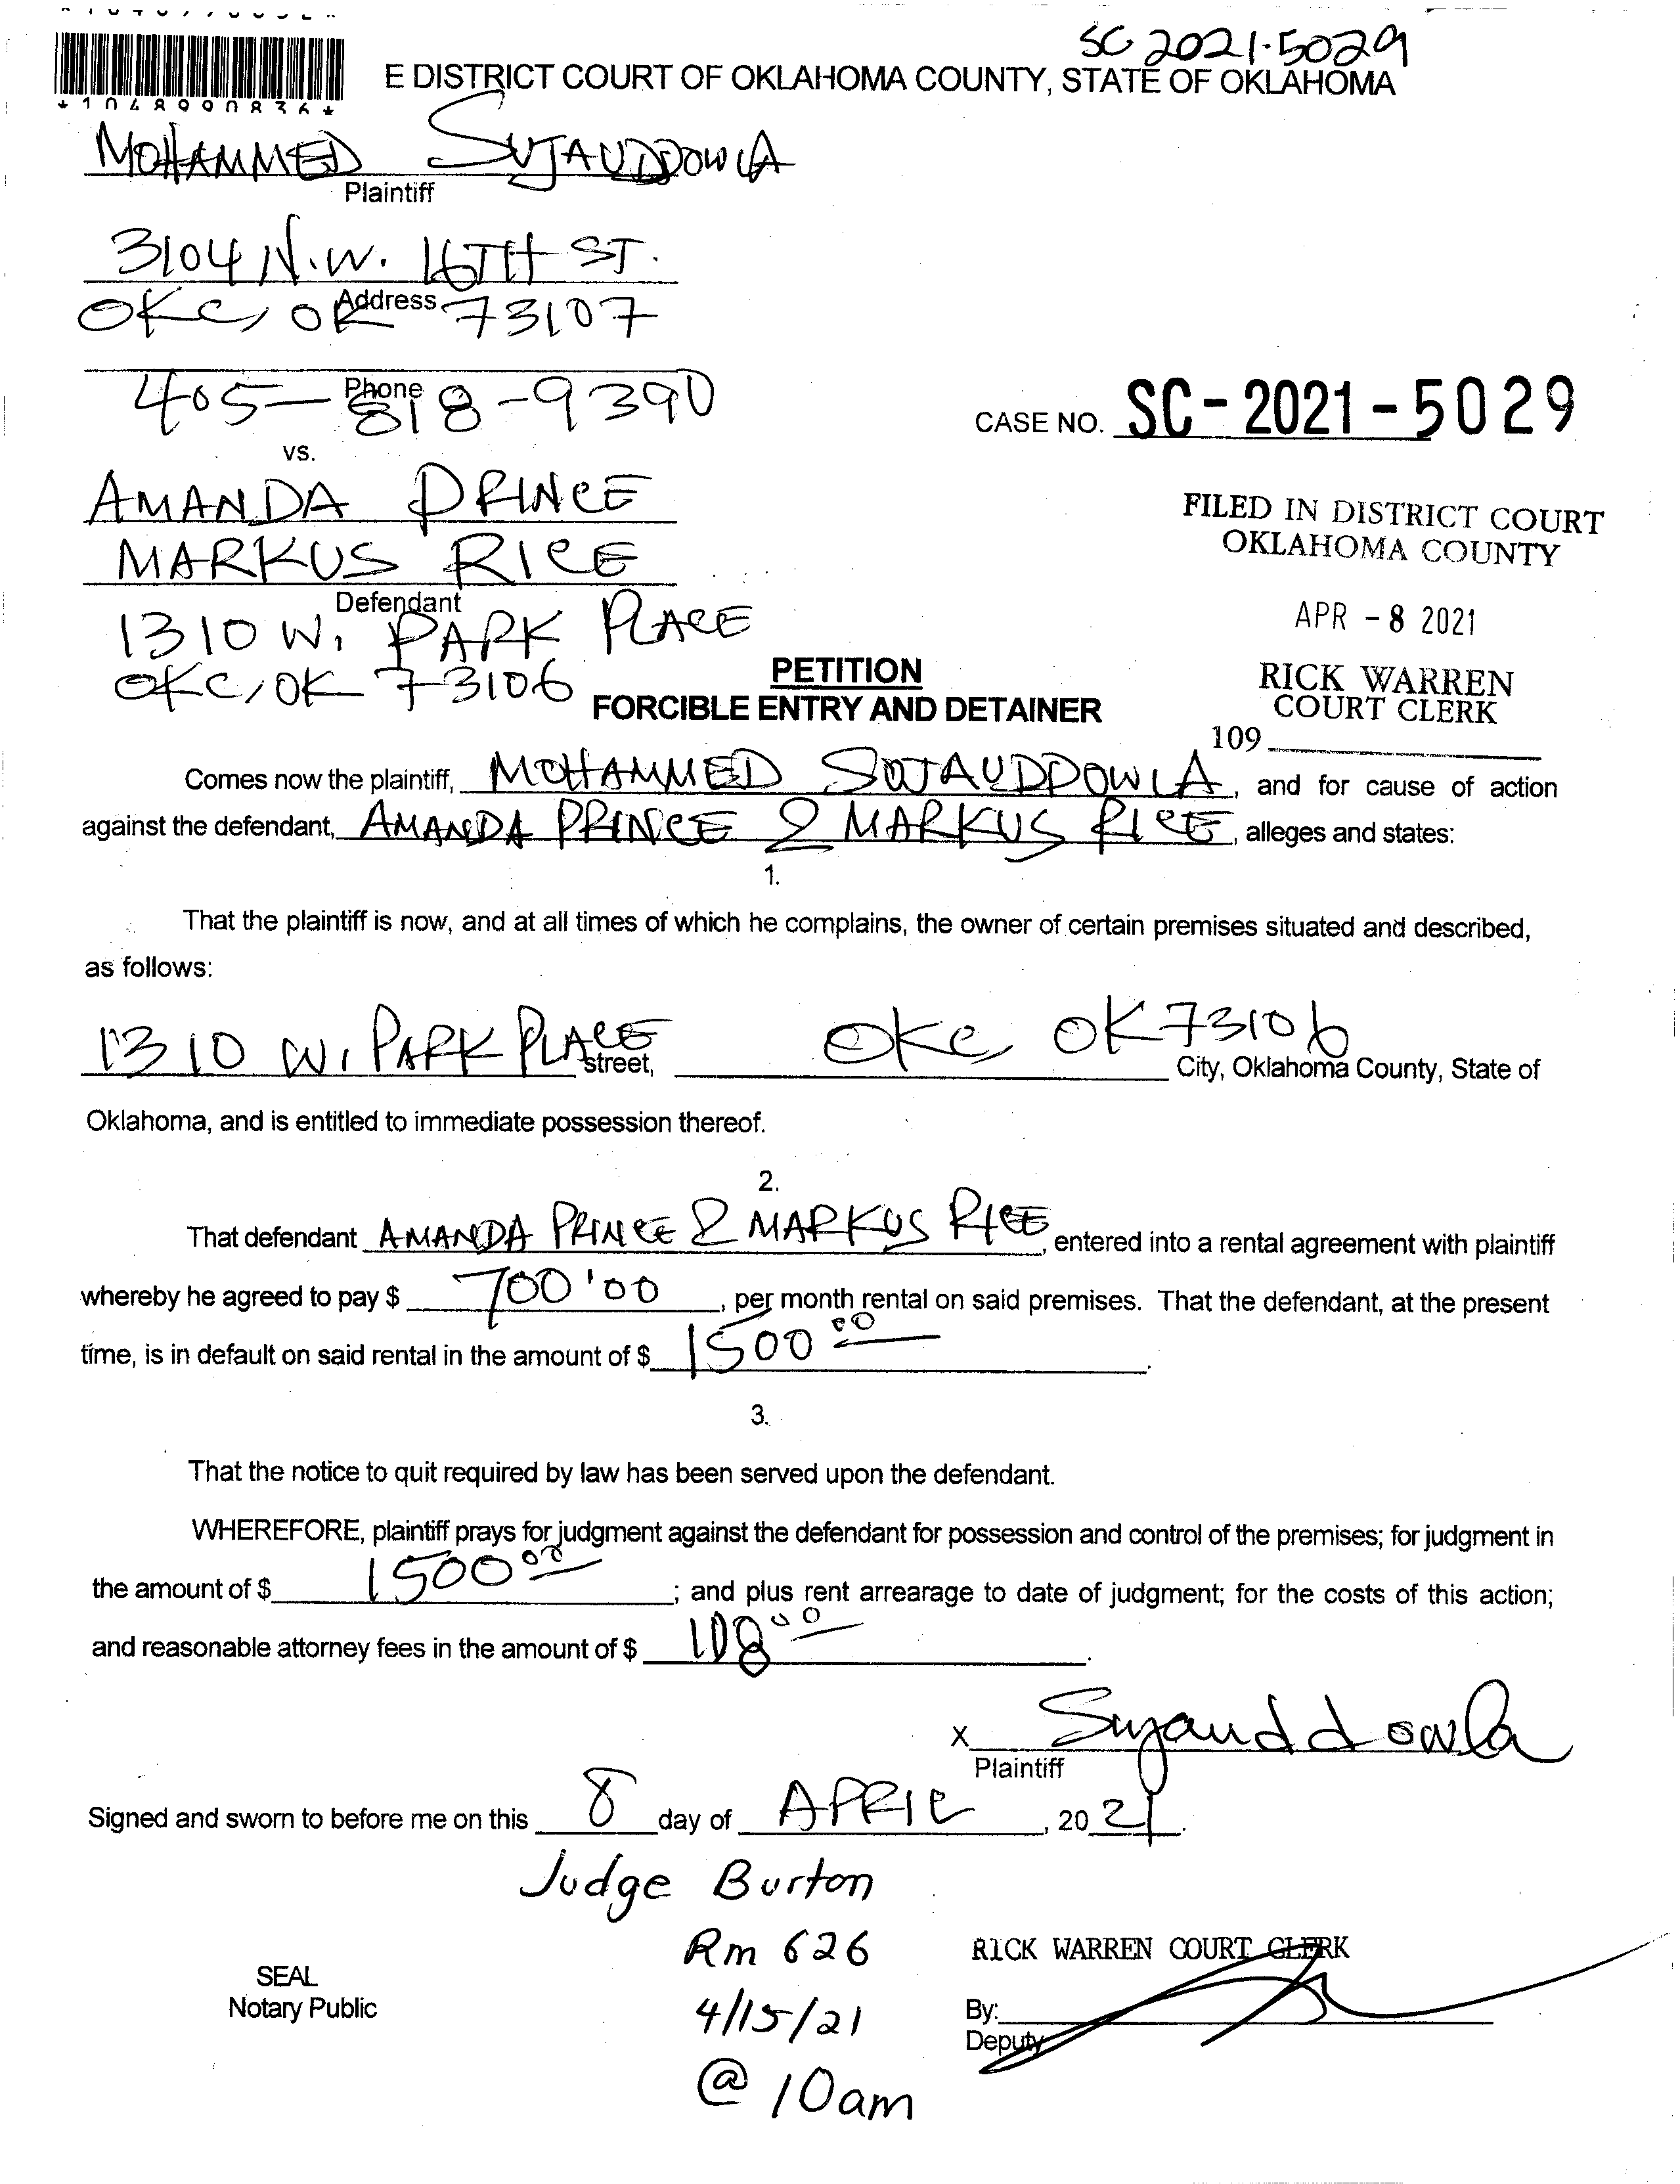 SC 2021-5029
E DISTRICT COURT OF OKLAHOMA COUNTY, STATE OF OKLAHOMA
*1048990836*
MOHAMMED SUJAUDDOWLA
Plaintiff
3104 N.W. 16TH ST.
Address
OKC, OK 73107
Phone
405-818-9390
CASE NO. SC-2021-5029
vs.
AMANDA PRINCE
MARKUS RICE
Defendant
1310 W. PARK PLACE
OKC, OK 73106
FILED IN DISTRICT COURT
OKLAHOMA COUNTY
APR -8 2021
RICK WARREN
COURT CLERK
109
PETITION
FORCIBLE ENTRY AND DETAINER
Comes now the plaintiff, MOHAMMED SUJAUDDOWLA, and for cause of action
against the defendant, AMANDA PRINCE & MARKUS RICE, alleges and states:
1.
That the plaintiff is now, and at all times of which he complains, the owner of certain premises situated and described,
as follows:
1310 W. PARK PLACE street, OKC, OK 73106 City, Oklahoma County, State of
Oklahoma, and is entitled to immediate possession thereof.
2.
That defendant AMANDA PRINCE & MARKUS RICE, entered into a rental agreement with plaintiff
whereby he agreed to pay $ 700'00, per month rental on said premises. That the defendant, at the present
time, is in default on said rental in the amount of $ 1500 00.
3.
That the notice to quit required by law has been served upon the defendant.
WHEREFORE, plaintiff prays for judgment against the defendant for possession and control of the premises; for judgment in
the amount of $ 1500 00; and plus rent arrearage to date of judgment; for the costs of this action;
and reasonable attorney fees in the amount of $ 108 00.
X Sujauddowla
Plaintiff
Signed and sworn to before me on this 8 day of APRIL, 2021.
Judge Burton
Rm 626
4/15/21
@ 10am
SEAL
Notary Public
RICK WARREN COURT CLERK
By:
Deputy